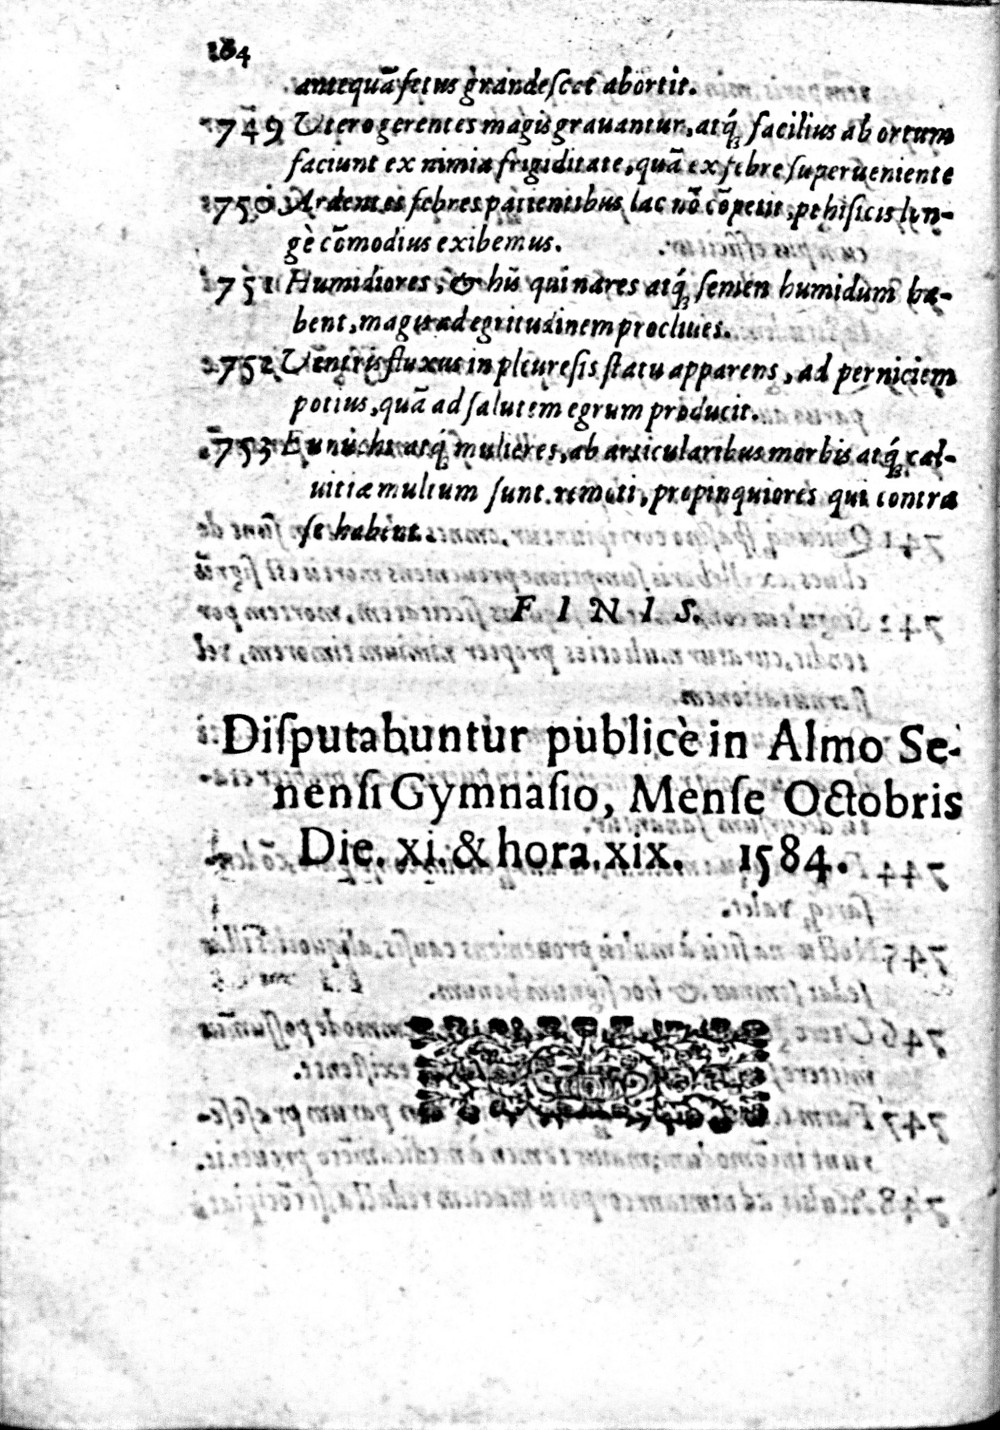 164
antequã fetus grandescet abortit.
749 Utero gerentes magis grauantur, atq́; facilius abortum
faciunt ex nimia frigiditate, quã ex febre superueniente
750 Ardentes febres patientibus lac nõ cõpetit, pthisicis lon-
gè cõmodius exibemus.
751 Humidiores, & hũ qui nares atq́; semen humidum ha-
bent, magis ad egritudinem procliues.
752 Uentris fluxus in pleuresis statu apparens, ad perniciem
potius, quã ad salutem egrum producit.
753 Eunuchi atq́; mulieres, ab articularibus morbis atq́; cal-
uitiæ multum sunt remoti, propinquiores qui contra
se habent.
F I N I S.
Disputabuntur publicè in Almo Se-
nensi Gymnasio, Mense Octobris
Die. xi. & hora. xix. 1584.